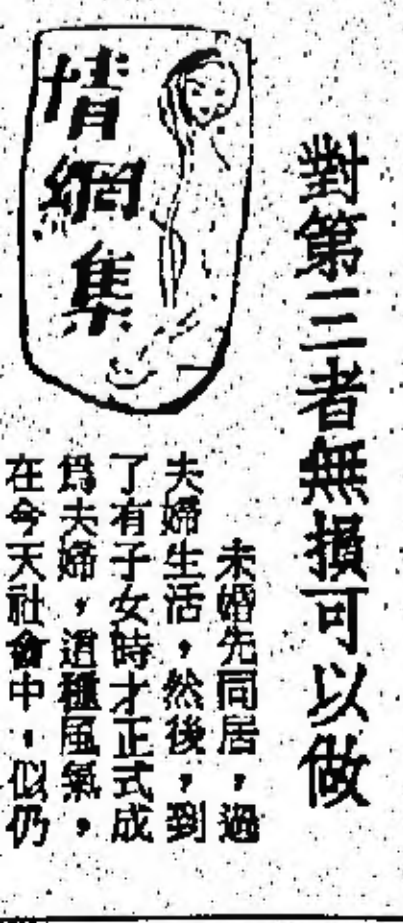 對第三者無損可以做
情網集
未婚先同居,過
夫婦生活,然後,到
了有子女時才正式成
爲夫婦,這種風氣,
在今天社會中,似仍